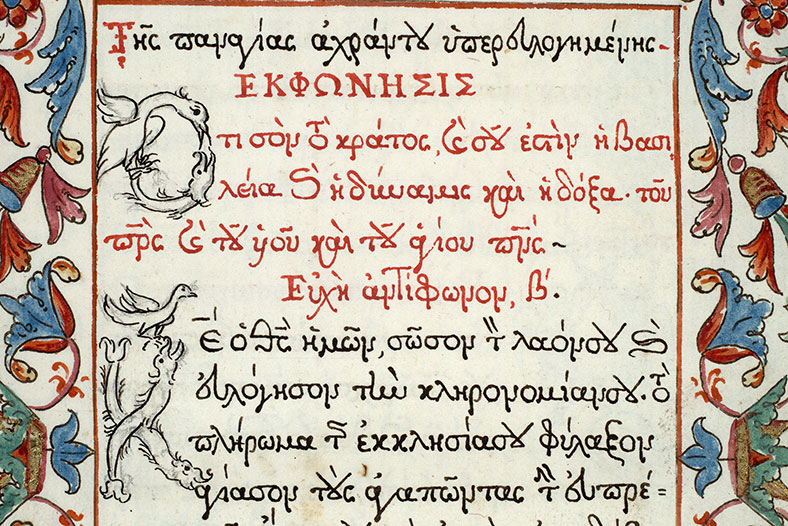 Τῆς παναγίας ἀχράντου ὑπερευλογημένης
ΕΚΦΩΝΗΣΙΣ
Ὅτι σὸν τὸ κράτος, καὶ σοῦ ἐστὶν ἡ βασι
λεία καὶ ἡ δύναμις καὶ ἡ δόξα· τοῦ
πρς καὶ τοῦ υἱοῦ καὶ τοῦ ἁγίου πνς ~
Εὐχὴ ἀντιφώνου, β'.
Κε ὁ θς ἡμῶν, σῶσον τὸν λαόν σου καὶ
εὐλόγησον τὴν κληρονομίαν σου· τὸ
πλήρωμα τῆς ἐκκλησίας σου φύλαξον
ἁγίασον τοὺς ἀγαπῶντας τὴν εὐπρέ=